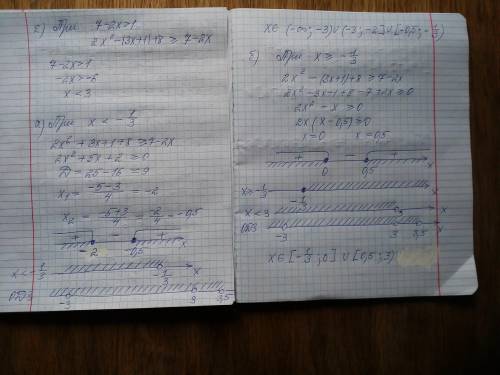 2) При 7-2x>1
2x²-|3x+1|+8 ≥ 7-2x
7-2x>1
-2x>-6
x<3
а) При x < -1/3
2x²+3x+1+8 ≥ 7-2x
2x²+5x+2 ≥ 0
D = 25-16 = 9
x₁ = (-5-3)/4 = -2
x₂ = (-5+3)/4 = -2/4 = -0,5
+ - + x
-2 -0,5
x<-1/3 -1/3 x
ОДЗ -3 3 3,5
x∈ (-∞; -3)∪(-3; -2]∪[-0,5; -1/3)
б) При x ≥ -1/3
2x² - (3x+1)+8 ≥ 7-2x
2x²-3x-1+8-7+2x ≥ 0
2x² - x ≥ 0
2x(x-0,5) ≥ 0
x=0 x=0,5
+ - + x
0 0,5
x≥-1/3 -1/3 x
x<3 3 x
ОДЗ -3 3 3,5 x
x∈ [-1/3; 0] ∪ [0,5; 3)